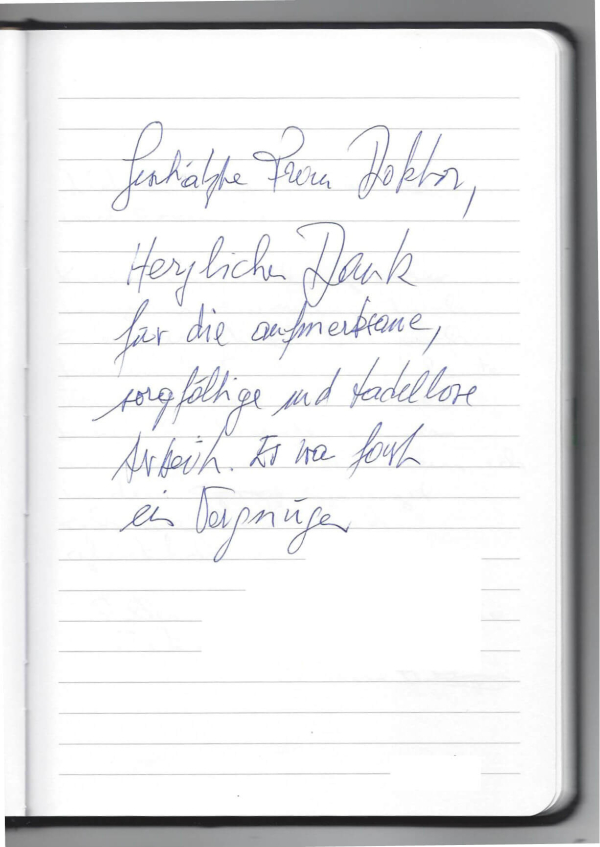 Geschätzte Frau Doktor,
Herzlichen Dank
für die aufmerksame,
sorgfältige und tadellose
Arbeit. Es war fast
ein Vergnügen